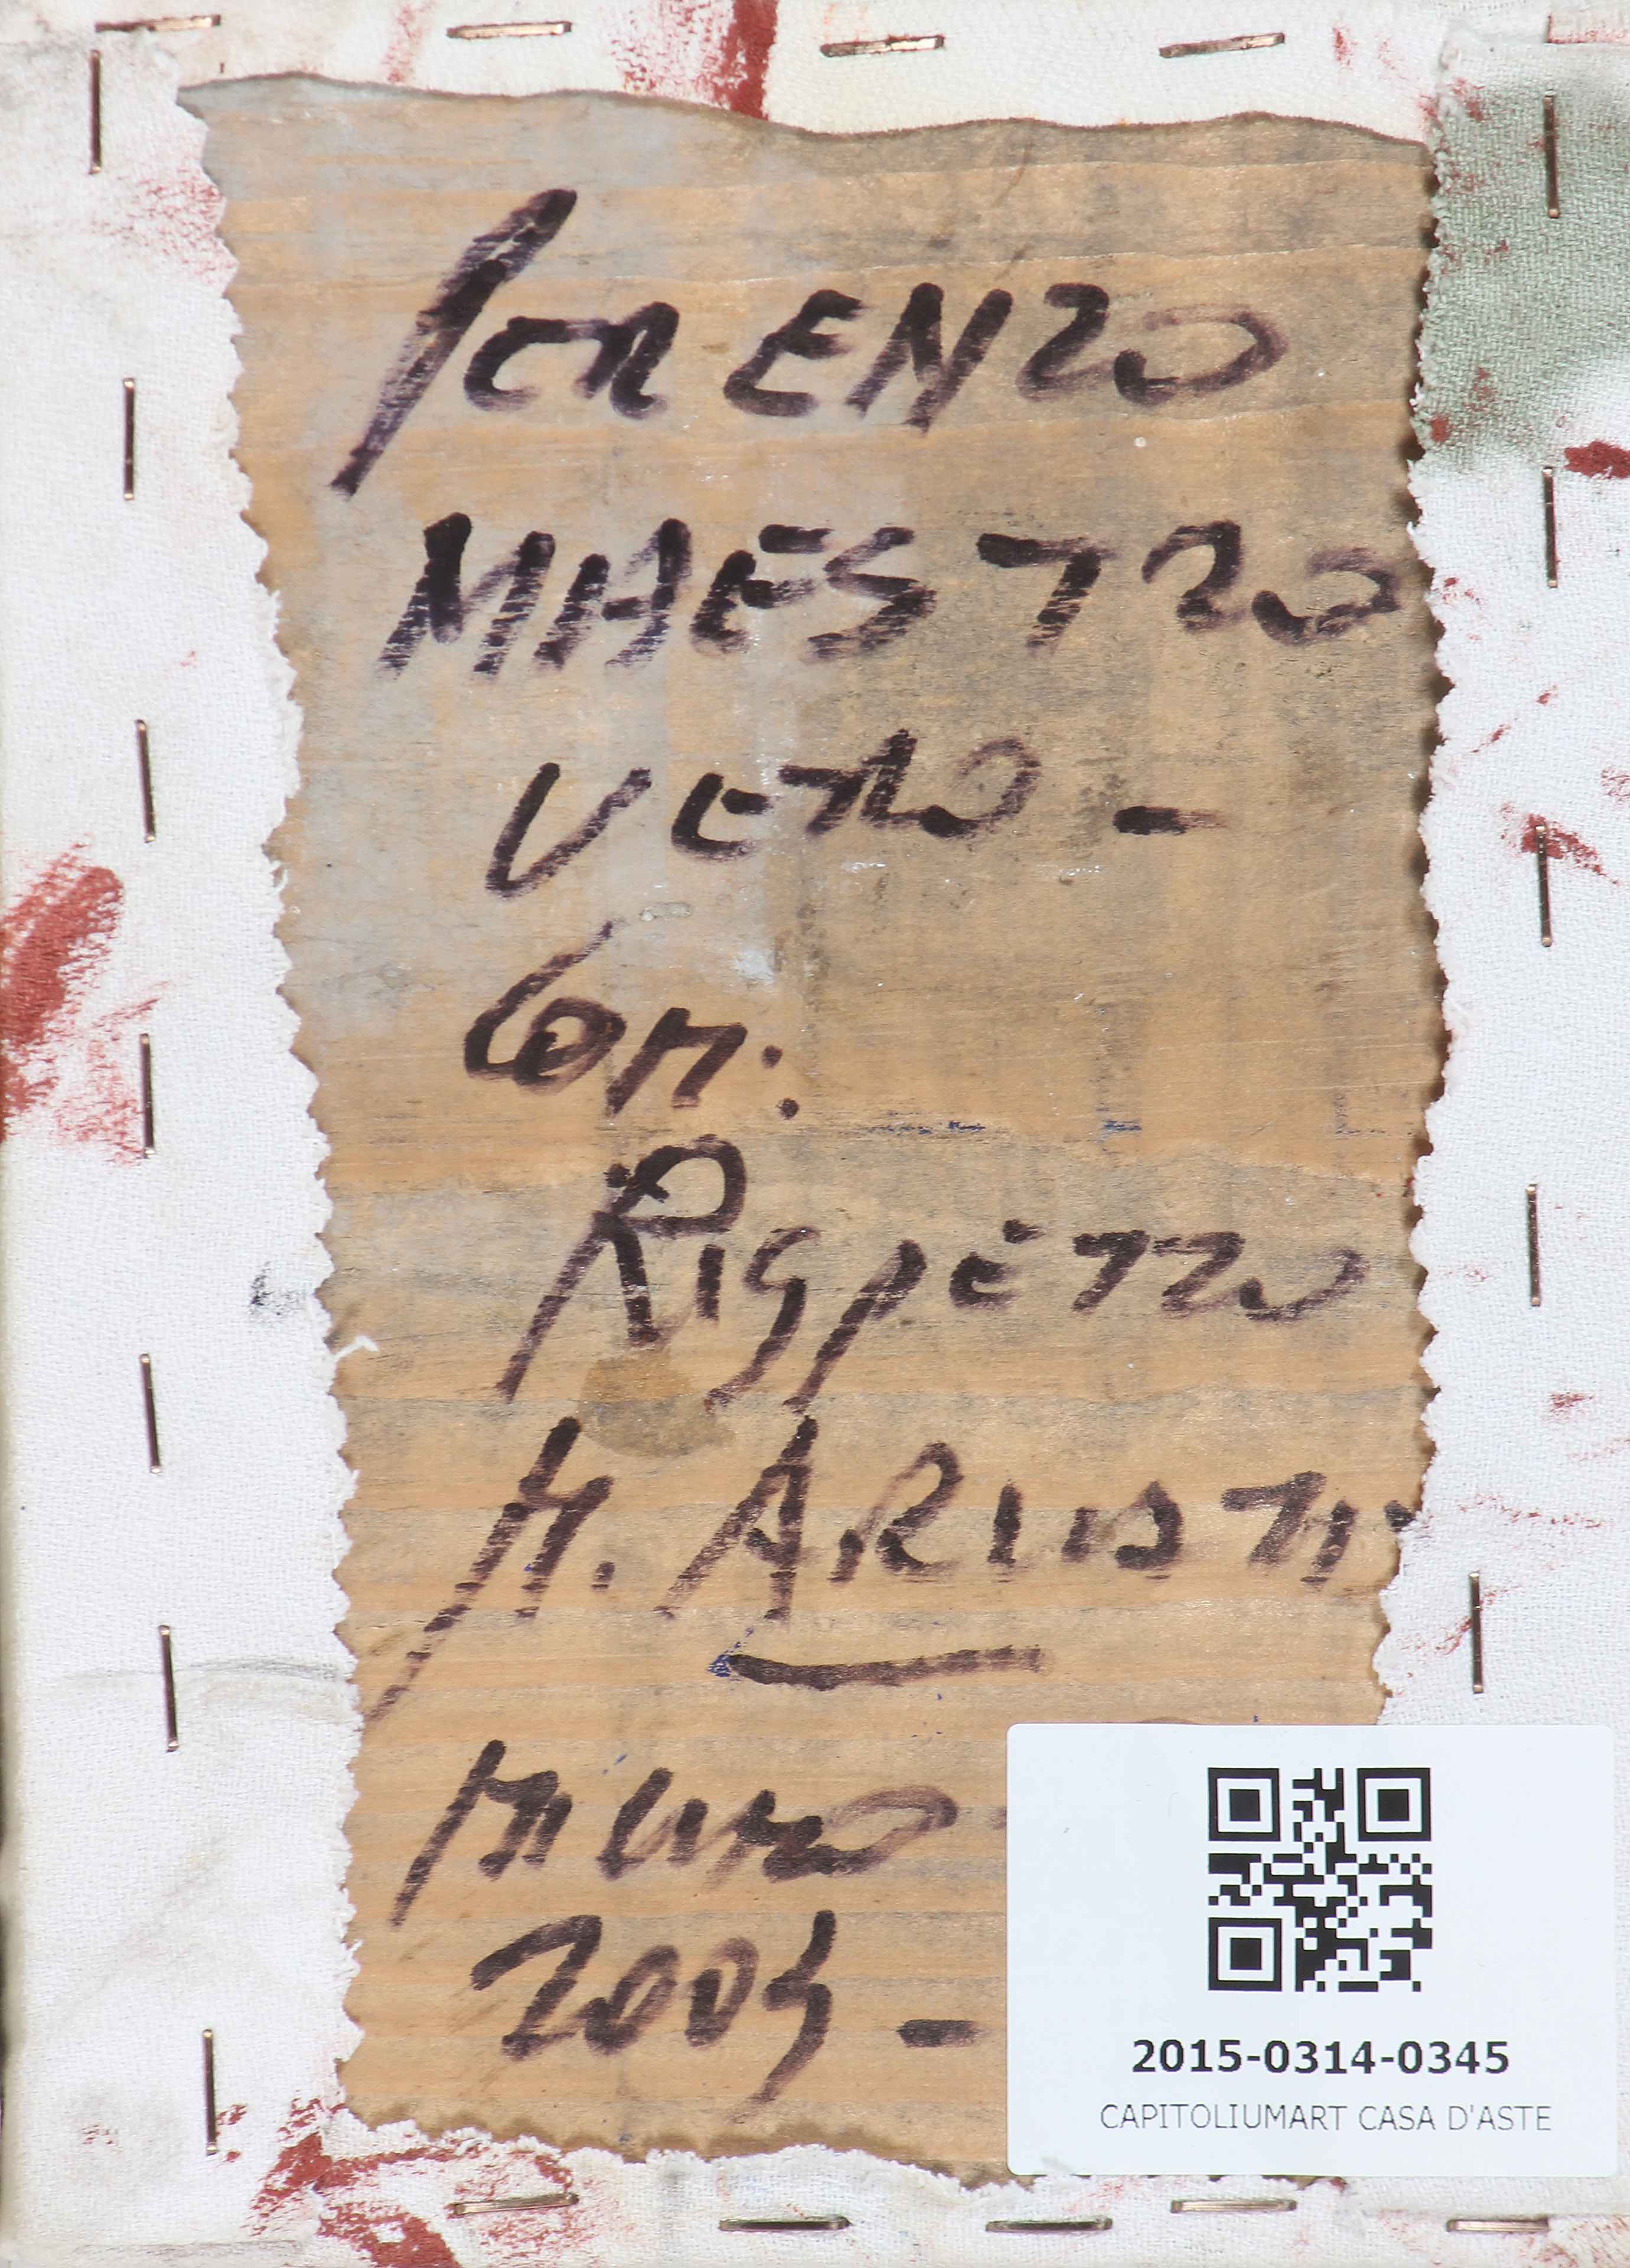 LORENZO
MAESTRO
VERO -
Con:
RISPETTO
M. ARIOSTI
MILANO
2003 -
2015-0314-0345
CAPITOLIUMART CASA D'ASTE